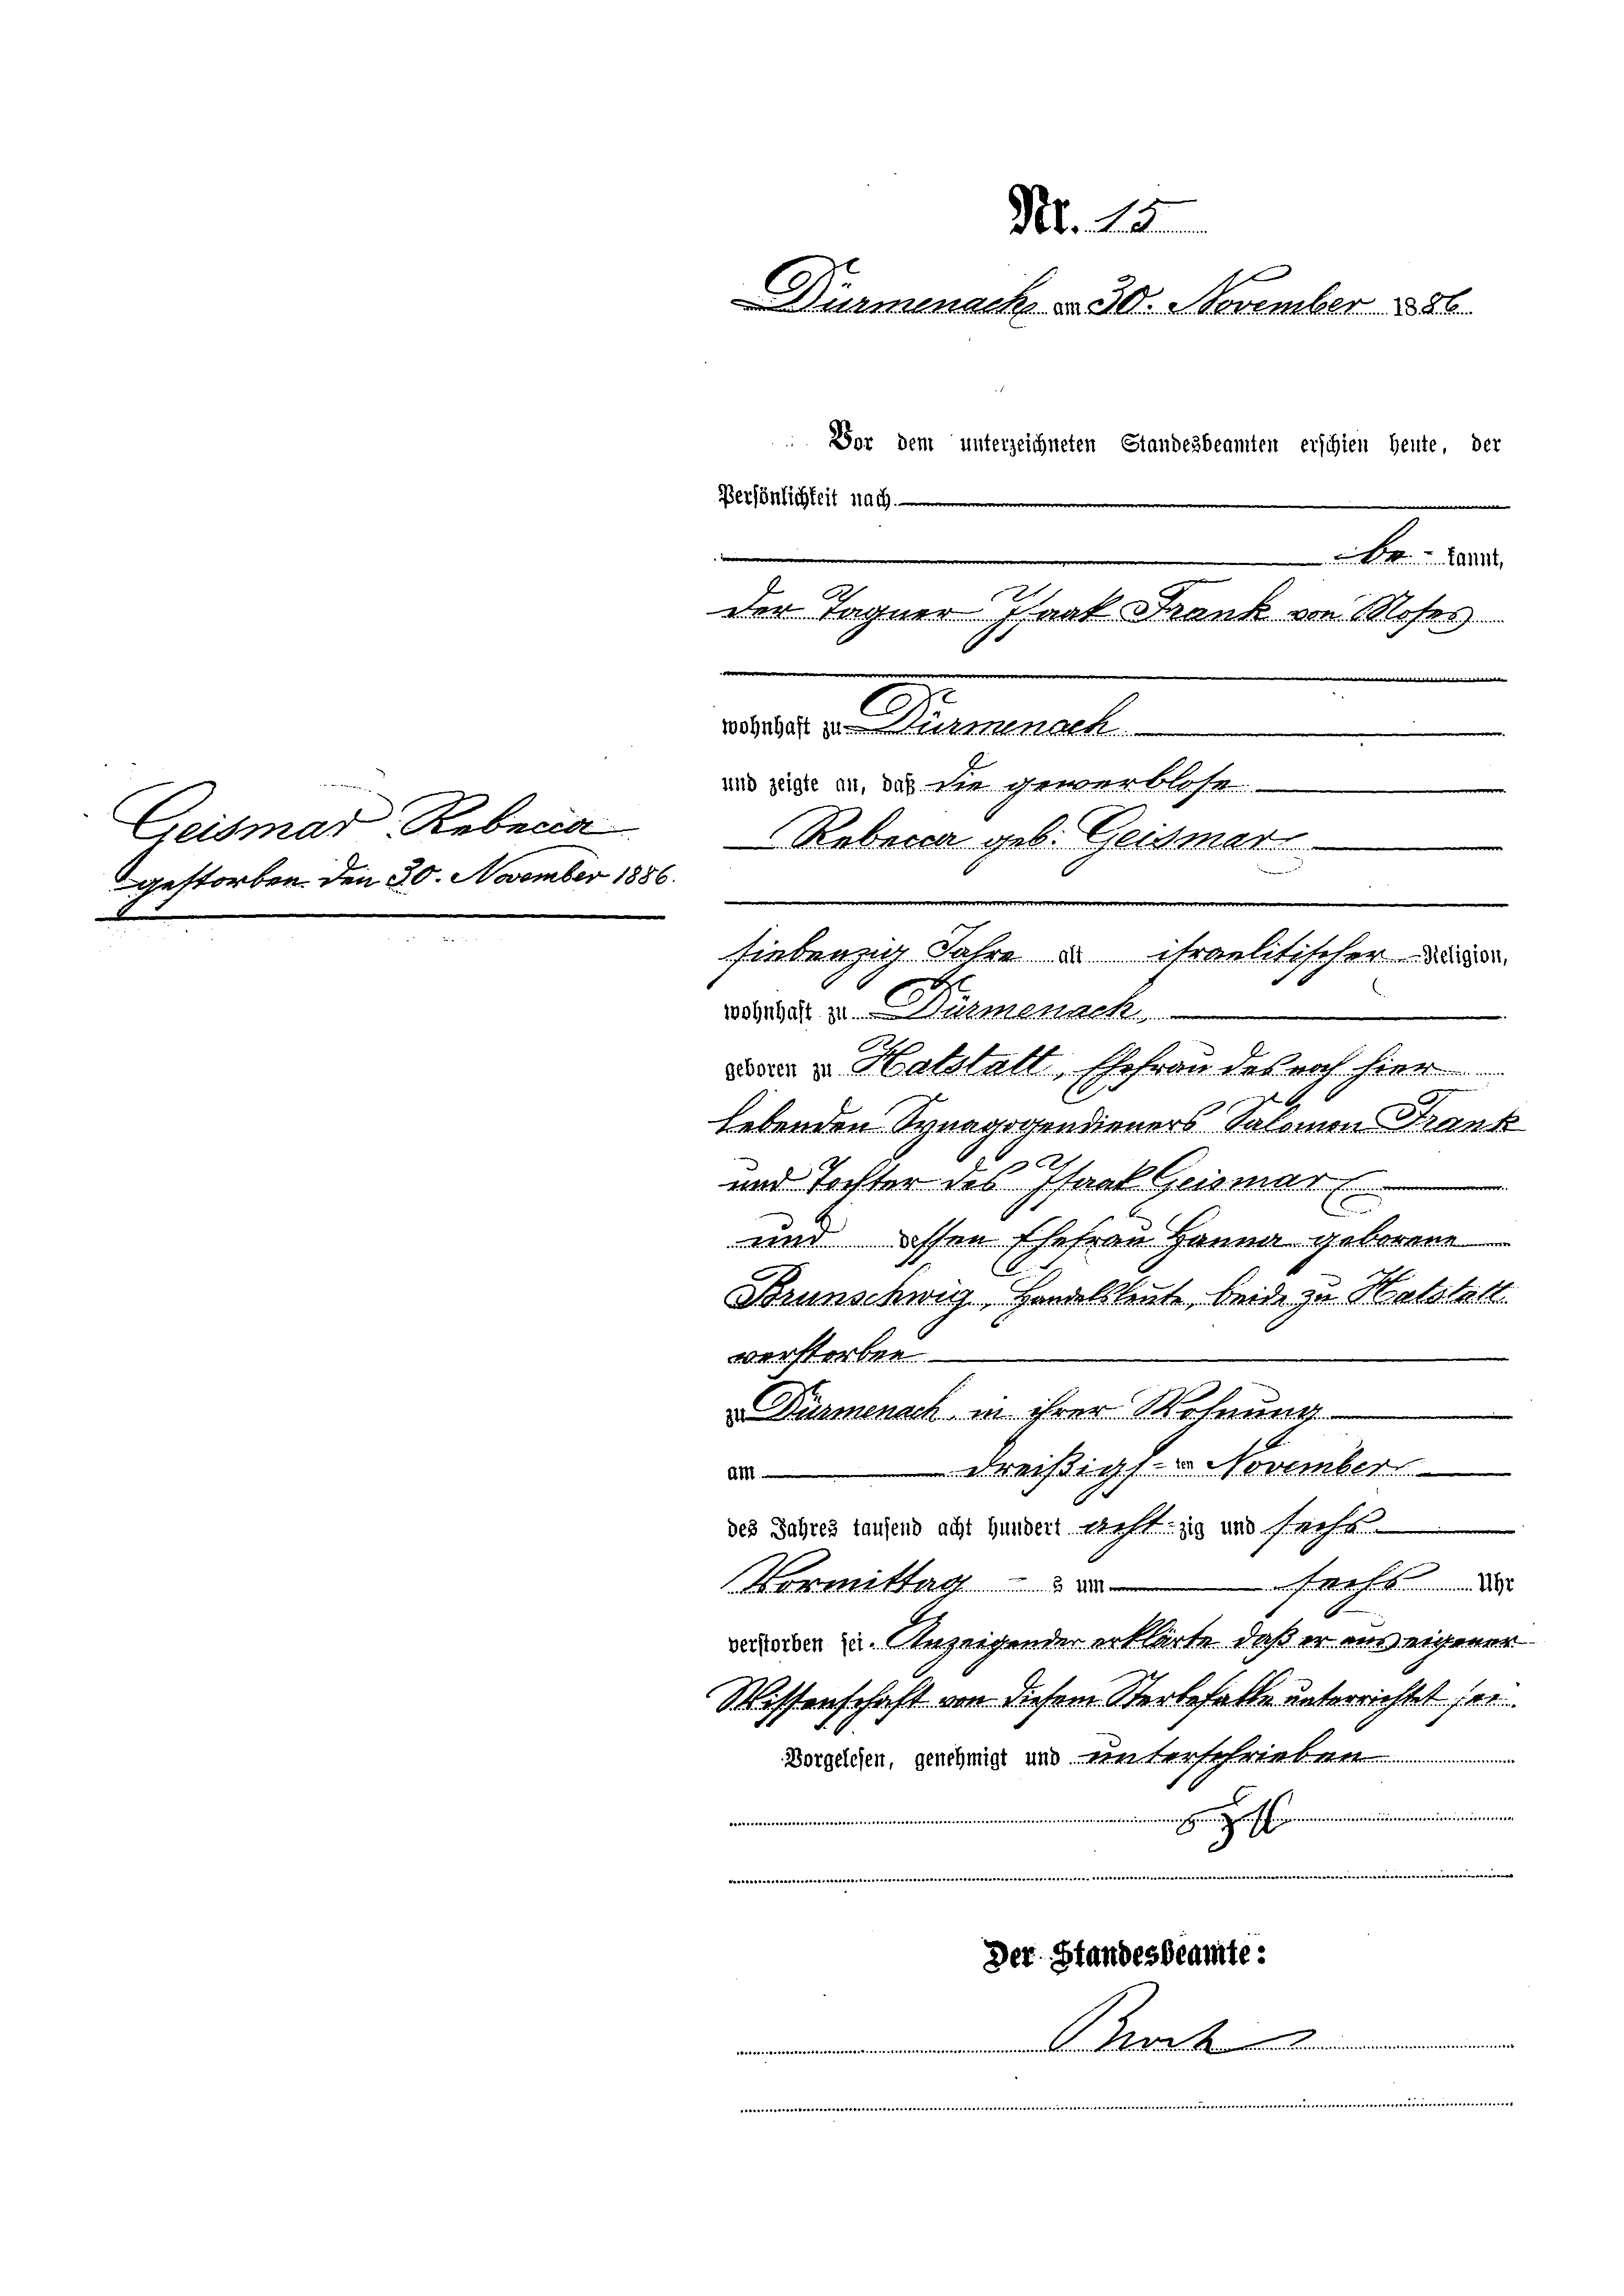 Nr. 15
Dürmenach am 30. November 1886
Vor dem unterzeichneten Standesbeamten erschien heute, der
Persönlichkeit nach
be- kannt,
der Tagner Isaak Frank von Moses
wohnhaft zu Dürmenach
und zeigte an, daß die gewerblose
Rebecca geb. Geismar
Geismar Rebecca
gestorben den 30. November 1886.
siebenzig Jahre alt israelitischer Religion,
wohnhaft zu Dürmenach,
geboren zu Hatstatt, Ehefrau des noch hier
lebenden Synagogendieners Salomon Frank
und Tochter des Isaak Geismar
und dessen Ehefrau Hanna geborene
Brunschwig, Handelsleute, beide zu Hatstatt
verstorben
zu Dürmenach in ihrer Wohnung
am dreißigs-ten November
des Jahres tausend acht hundert acht-zig und sechs
Vormittag - s um sechs Uhr
verstorben sei. Anzeigender erklärte daß er aus eigener
Wissenschaft von diesem Sterbefalle unterrichtet sei.
Vorgelesen, genehmigt und unterschrieben
Der Standesbeamte: